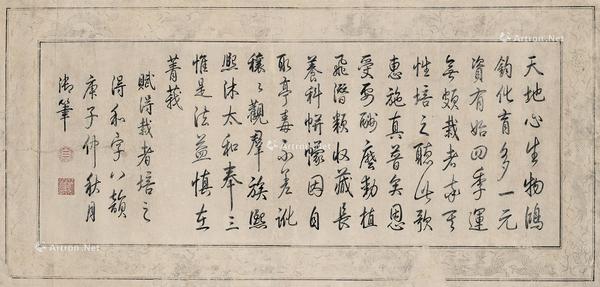 天地心生物鴻
鈞化育多一元
資有始四季運
無頗栽者率其
性培之聽此歌
惠施真普矣恩
受罔酬麼動植
飛潛類收藏長
養科帡幪因自
取亭毒不差訛
穰々觀羣族熙
熙沐太和奉三
惟是法益慎在
菁莪
賦得栽者培之
得和字八韻
庚子仲秋月
御筆
Artron.Net